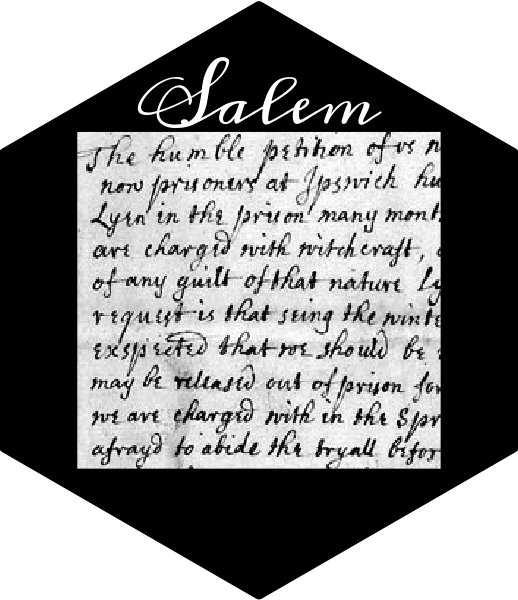 Salem
The humble petition of us
now prisoners at Ipswich hu
Lyen in the prison many mont
are charged with witchcraft,
of any guilt of that nature Ly
request is that seing the winte
exspected that we should be
may be released out of prison for
we are charged with in the Spr
afrayd to abide the tryall befor